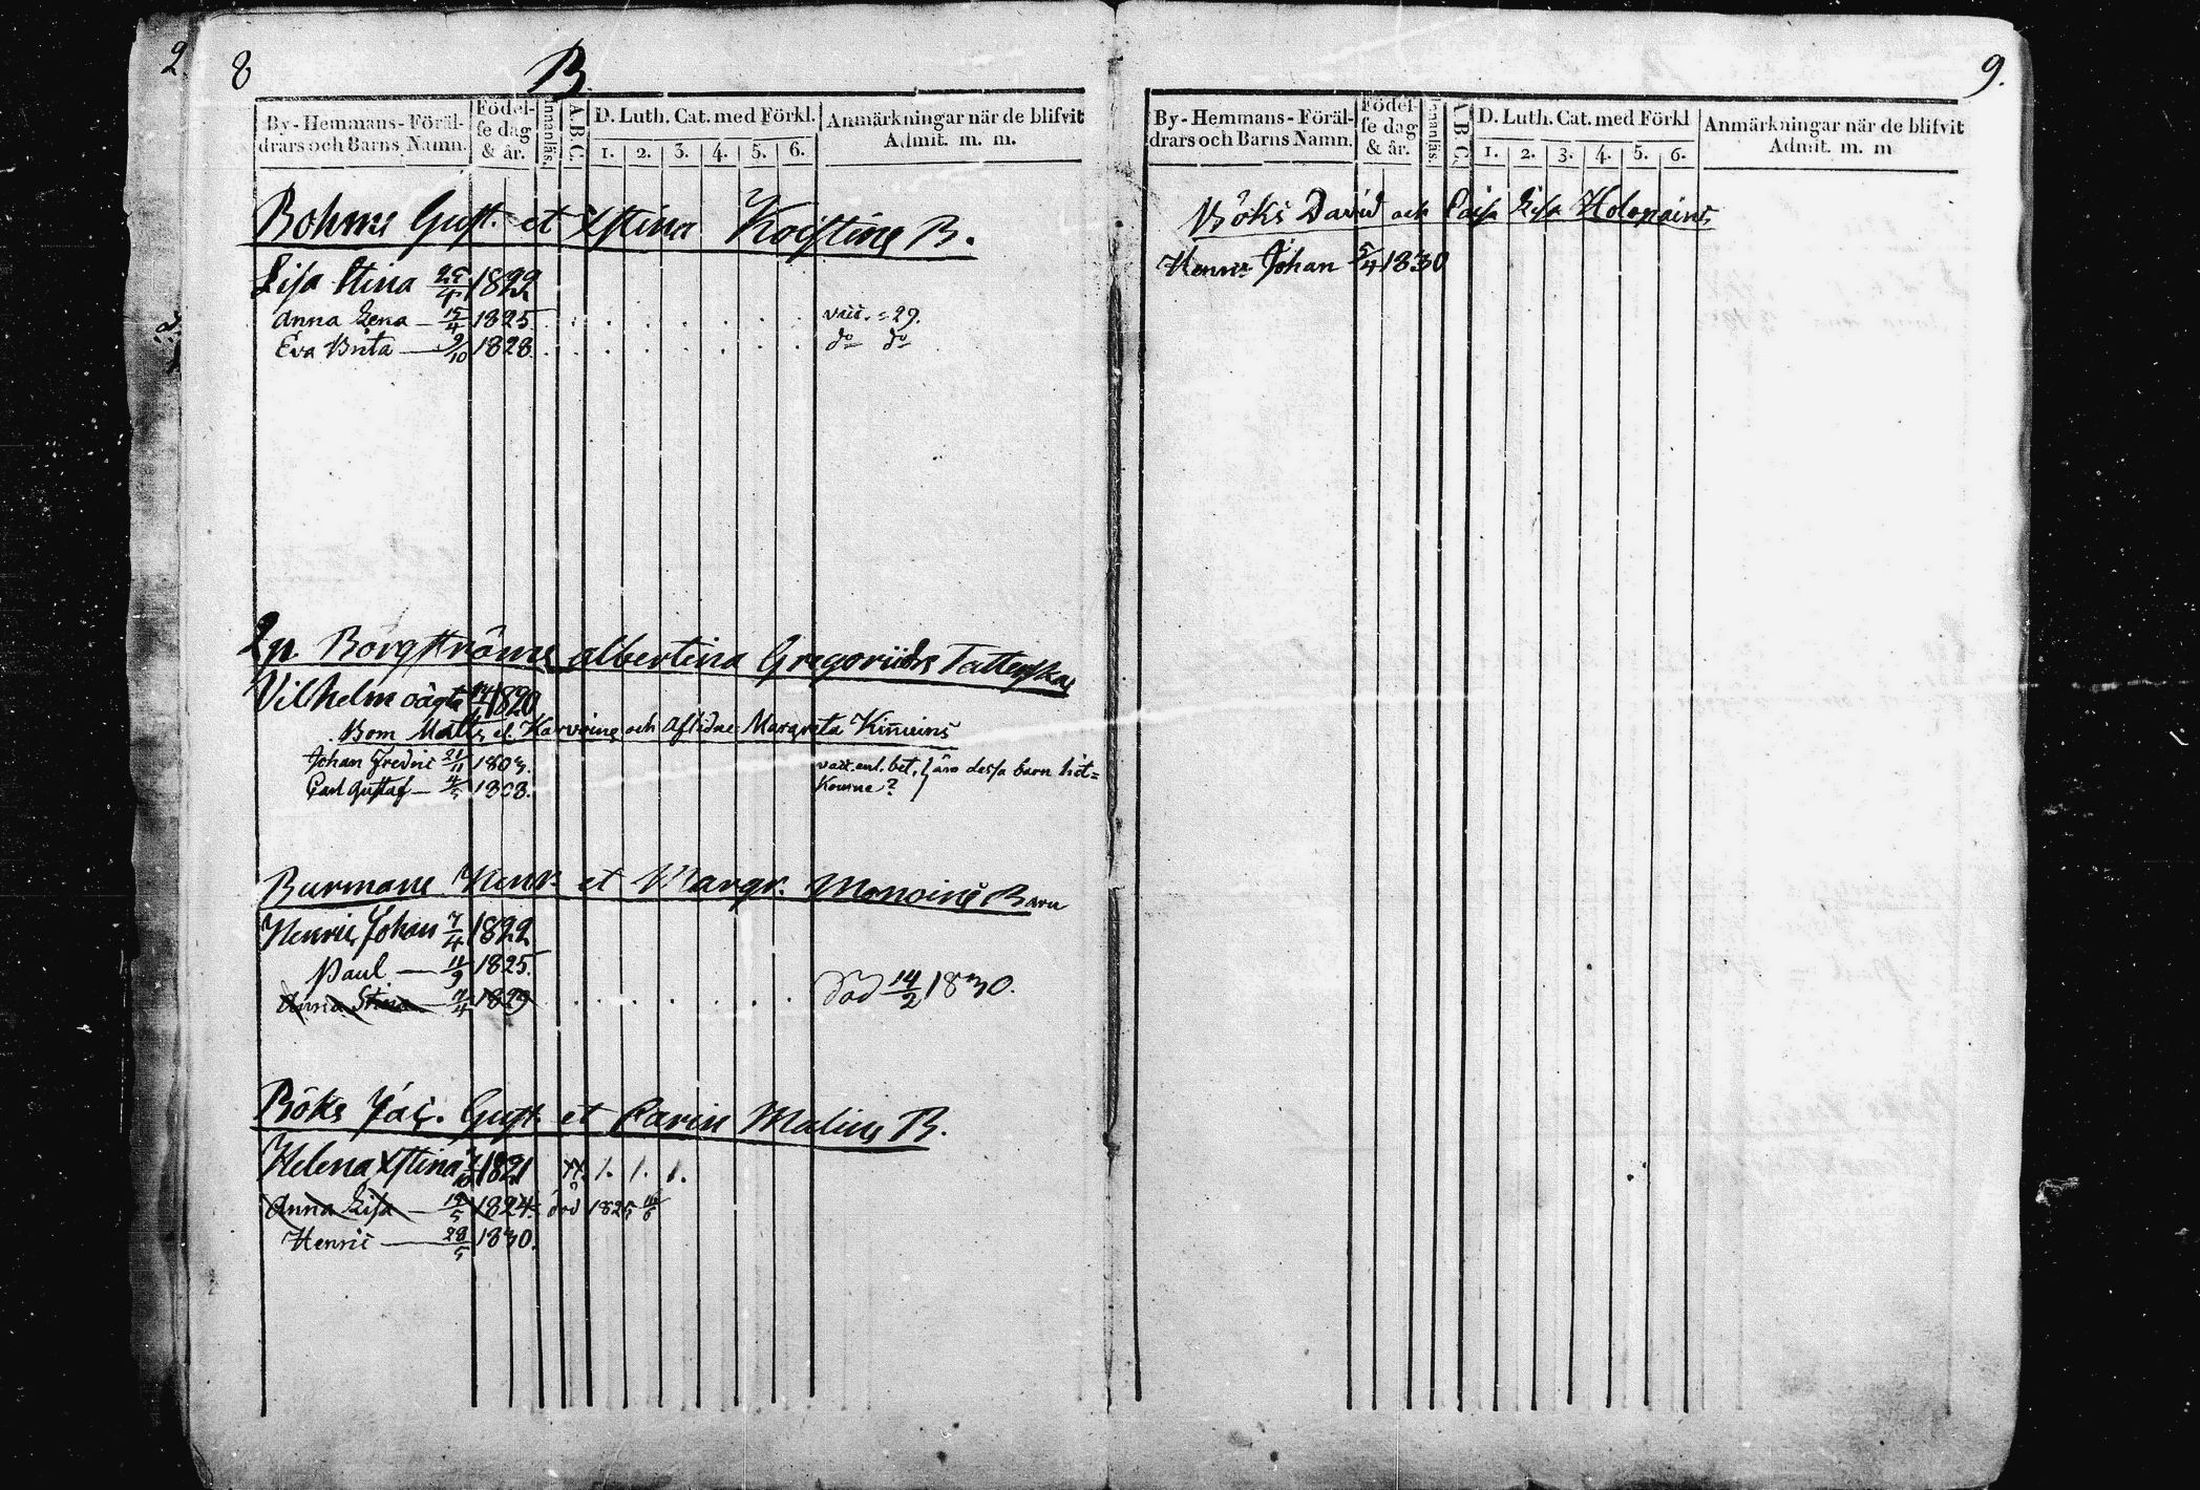 8
B.
By-Hemmans-Föräl-
drars och Barns Namn.
Födel-
se dag
& år.
Innanläs.
A.B.C.
D. Luth. Cat. med Förkl.
1. 2. 3. 4. 5. 6.
Anmärkningar när de blifvit
Admit. m. m.
Bohms Gust. et Xstina Koistins B.
Lisa Stina 25/4 1822
Anna Lena — 15/4 1825.
Eva Brita — 9/10 1828. do do
Borgströms Albertina
Vilhelm oägta 1820
Bom Matts et Karvoins och Aflidne Margreta
Johan Fredric 21/11 1803.
Carl Gustaf — 4/5 1808. äro dessa barn hit=
komne?
Burmans Henr. et Margr. Monoins Barn
Henric Johan 7/4 1822
Paul — 11/9 1825.
Anna Stina — 7/4 1829 död 14/2 1830.
Böks Jac. Gust. et Carin Malins B.
Helena Xstina 1821 1. 1. 1.
Anna Lisa — 19/5 1824. död 1825
Henric — 28/5 1830.
9.
By-Hemmans-Föräl-
drars och Barns Namn.
Födel-
se dag
& år.
Innanläs.
A.B.C.
D. Luth. Cat. med Förkl
1. 2. 3. 4. 5. 6.
Anmärkningar när de blifvit
Admit. m. m
Böks David och Caisa Lisa Holopains
Henric Johan 5/4 1830